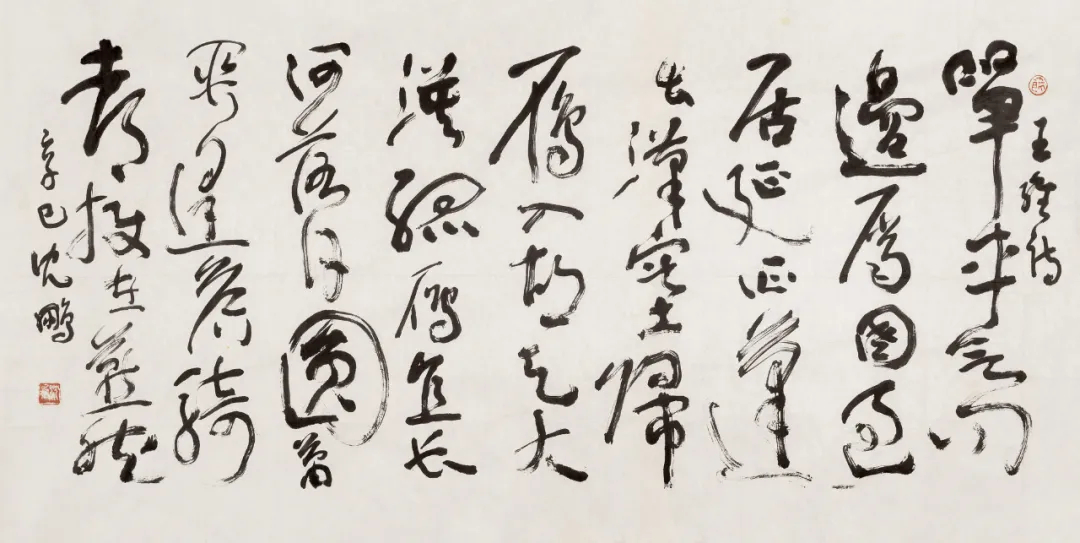 王維詩
單車欲問
邊屬國過
居延征蓬
出漢塞歸
雁入胡天大
漠孤雁直长
河落日圓蕭
關逢候騎
都護在燕然
辛巳沈鵬